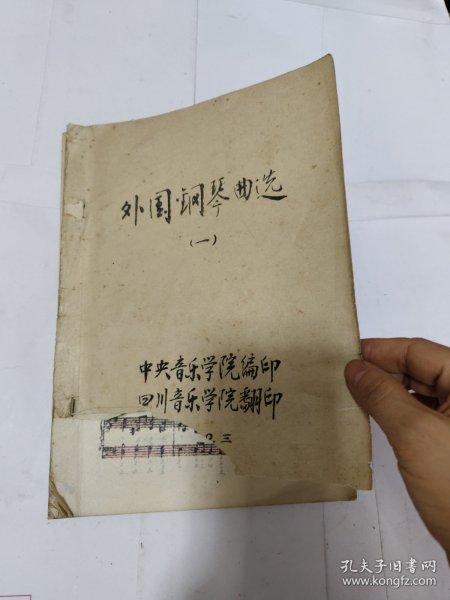 外国钢琴曲选
(一)
中央音乐学院编印
四川音乐学院翻印
三
孔夫子旧书网
www.kongfz.com